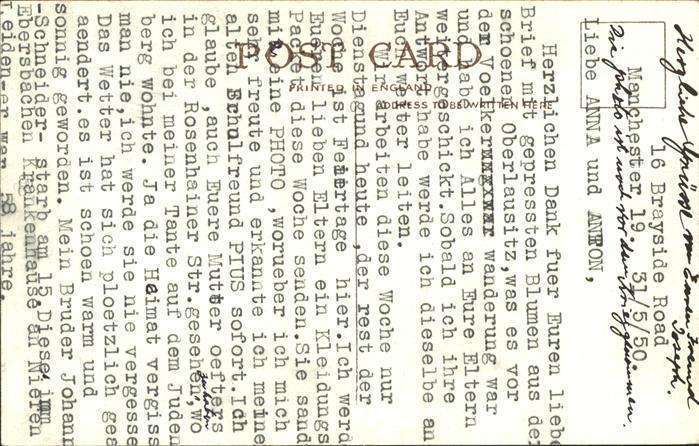 POST CARD
PRINTED IN ENGLAND
ADDRESS TO BE WRITTEN HERE
16 Brayside Road
Manchester 19 31/5/50
Liebe ANNA und ANTON,
Herzlichen Dank fuer Euren liebe
Brief mit gepressten Blumen aus de
schoenen Oberlausitz,was es vor
der Voelkerwanderung war
und habe ich Alles an Eure Eltern
weitergeschickt.Sobald ich ihre
Antwort habe werde ich dieselbe an
Euch weiter leiten.
Wir arbeiten diese Woche nur
Dienstag und heute ,der rest der
Woche ist Feiertage hier.Ich werd
Euren lieben Eltern ein Kleidungs
Packet diese Woche senden.Sie sand
mir eine PHOTO ,worueber ich mich
sehr freute und erkannte ich meine
alten Schulfreund PIUS sofort.Ich
glaube ,auch Euere Mutter oefters
in der Rosenhainer Str.gesehen, wo
zu haben
ich bei meiner Tante auf dem Juden
berg wohnte. Ja die Heimat vergiss
man nie,ich werde sie nie vergesse
Das Wetter hat sich ploetzlich gea
aendert.es ist schoen warm und
sonnig geworden. Mein Bruder Johann
-Schneider- starb am 15.Diese, im
Ebersbachen Krankenhause an Nieren
leiden-er war 58 jahre.
Herzliche Grüsse von Eurem Freund
Joseph.
Die photo ist noch vor dem Krieg genommen.